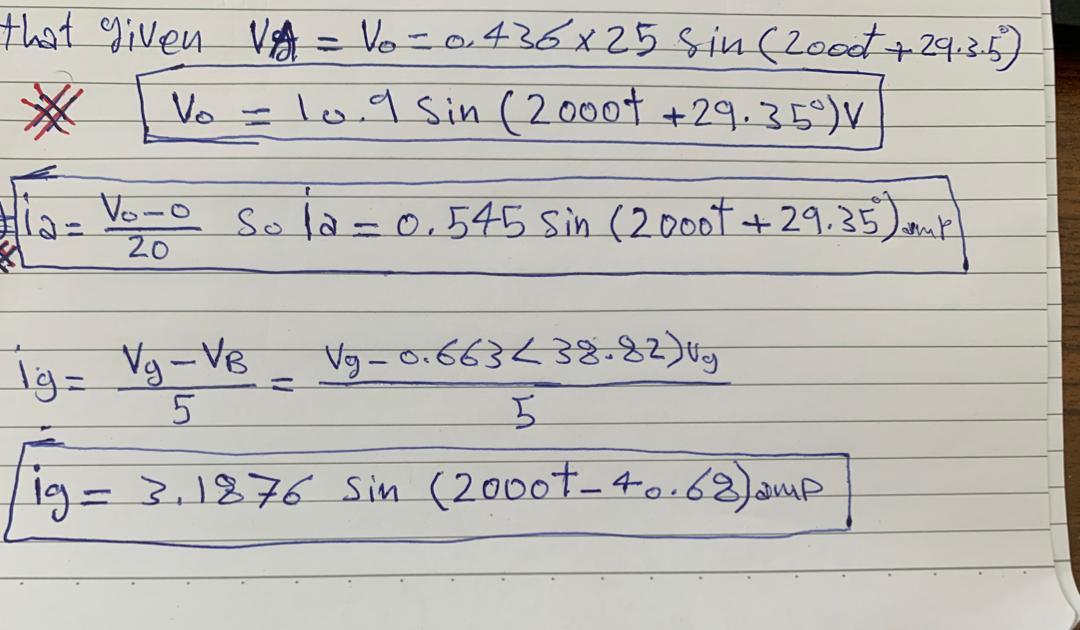 that given VA = Vo = 0.436 x 25 sin (2000t + 29.3.5°)
Vo = 10.9 sin (2000t + 29.35°) V
ia = Vo-0 / 20 So ia = 0.545 sin (2000t + 29.35°) amp
ig = Vg - VB / 5 = Vg - 0.663 < 38.82) Vg / 5
ig = 3.1876 sin (2000t - 40.68) amp